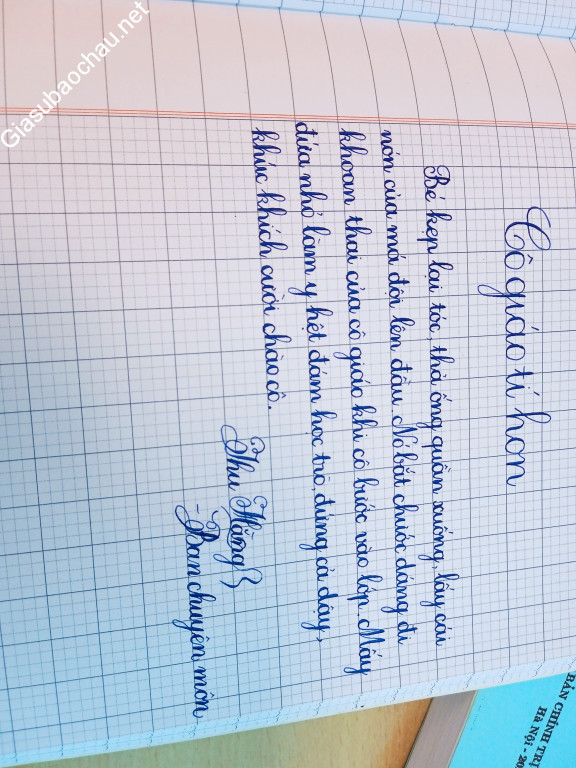 Giasubaochau.net
Cô giáo tí hon
Bé kẹp lại tóc, thả ống quần xuống, lấy cái
nón của má đội lên đầu. Nó bắt chước dáng đi
khoan thai của cô giáo khi cô bước vào lớp. Mấy
đứa nhỏ làm y hệt đám học trò, đứng cả dậy,
khúc khích cười chào cô.
Thu Hằng
- Ban chuyên môn
CHÍNH TRỊ
Hà Nội - 20